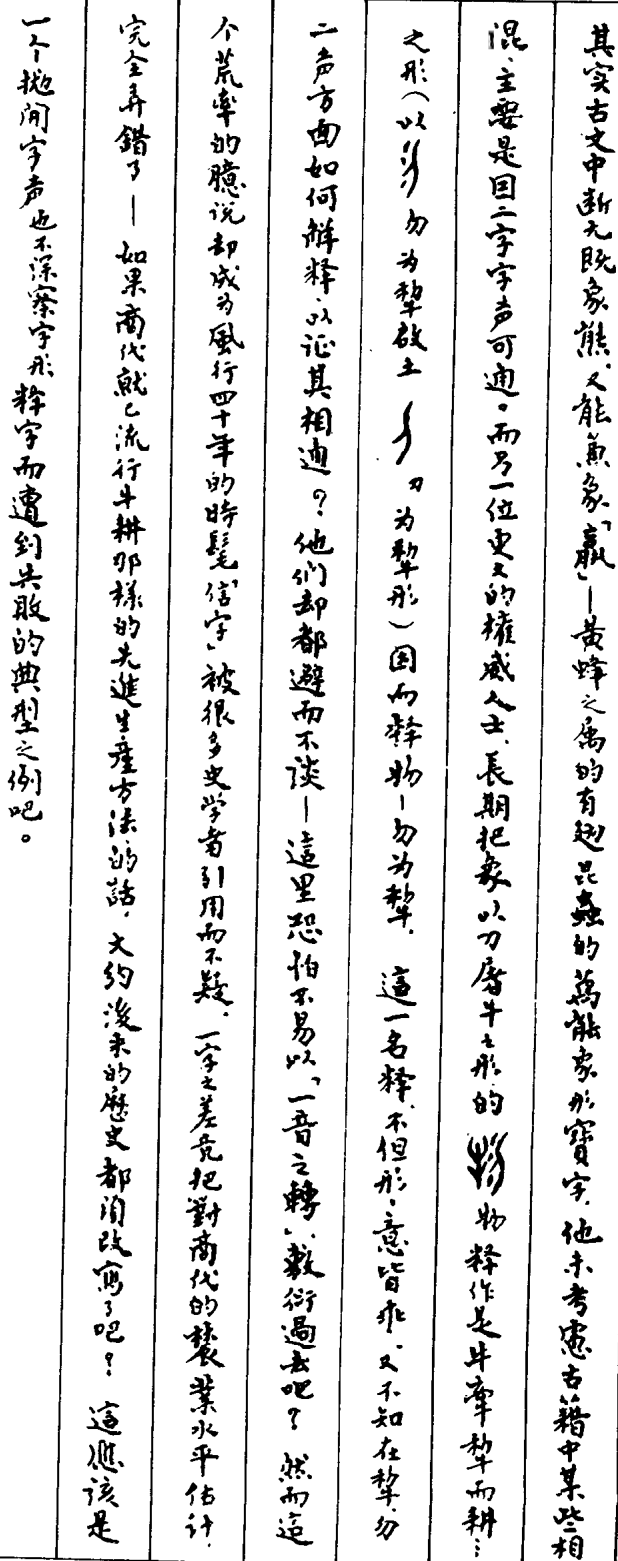 其实古文中断无既象熊、又能兼象「蠃」—黄蜂之属的有翅昆蟲的萬能象形寶字，他未考慮古籍中某些相
混，主要是因二字字声可通。而另一位更大的權威人士，長期把象以刀屠牛之形的 物 释作是牛牽犂而耕…
之形（以 勿为犂啟土 刀为犂形）因而释物—勿为犂，這一名释，不但形、意皆乖，又不知在犂、勿
二声方面如何解释，以证其相通？他们却都避而不谈—這里恐怕不易以「一音之轉」，敷衍過去吧？然而這
个荒率的臆说却成为風行四十年的時髦「信字」被很多史学者引用而不疑，一字之差竟把對商代的農業水平估计，
完全弄錯了—如果商代就已流行牛耕那樣的先進生産方法的話，大约後来的歷史都須改寫了吧？這應该是
一个抛開字声也不深察字形释字而遭到失敗的典型之例吧。